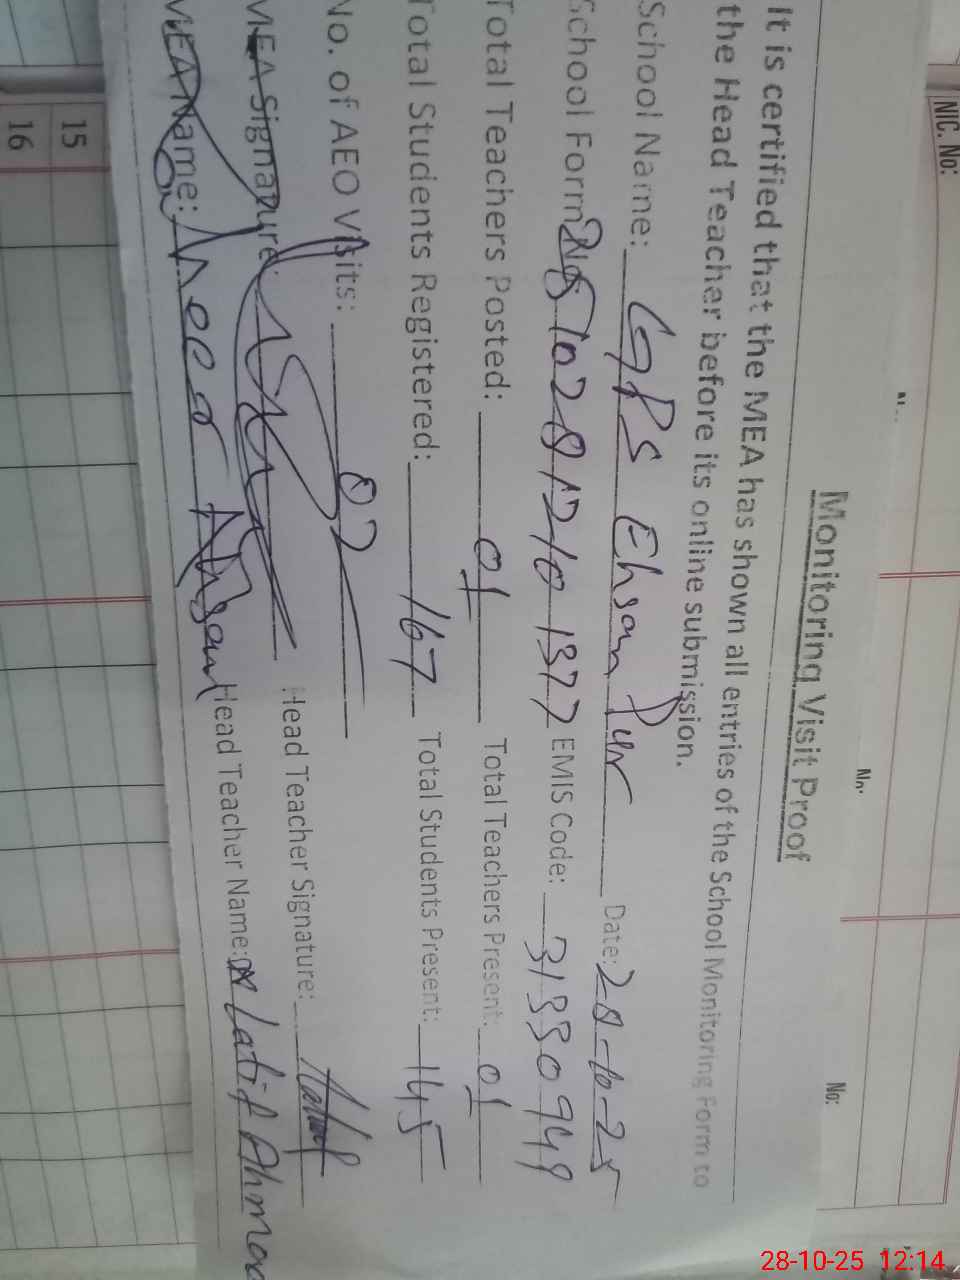 NIC. No:
No:
No:
Monitoring Visit Proof
It is certified that the MEA has shown all entries of the School Monitoring Form to
the Head Teacher before its online submission.
School Name: GPS Ehsan Pur Date: 28-10-25
School Form No EMIS Code: 31330949
Total Teachers Posted: 01 Total Teachers Present: 01
Total Students Registered: 167 Total Students Present: 145
No. of AEO Visits: 02
MEA Signature: Head Teacher Signature: Latif
MEA Name: Ahsan Head Teacher Name: Latif Ahmad
15
16
28-10-25 12:14